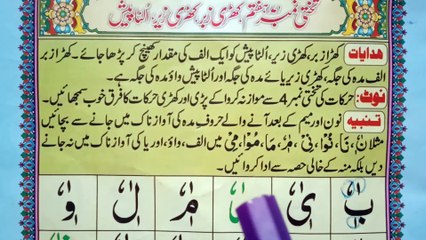 تختی نمبر ۷ ہفتم، کھڑی زبر، کھڑی زیر، اُلٹا پیش
ھدایات کھڑا زبر، کھڑی زیر، اُلٹا پیش کو ایک الف کی مقدار کھینچ کر پڑھا جائے۔ کھڑا زبر
الف مدہ کی جگہ، کھڑی زیر یائے مدہ کی جگہ اور الٹا پیش واؤ مدہ کی جگہ ہے۔
نوٹ: حرکات کی تختی نمبر 4 سے موازنہ کروا کے پڑی اور کھڑی حرکات کا فرق خوب سمجھائیں۔
تنبیہ نون اور میم کے بعد آنے والے حروف مدہ کی آواز ناک میں جانے سے بچائیں
مثلاً نَا، نُوْا، نِیْ، مَا، مُوْا، مِیْ میں الف، واؤ، اور یا کی آواز ناک میں نہ جانے
دیں بلکہ منہ کے خالی حصہ سے ادا کروائیں۔